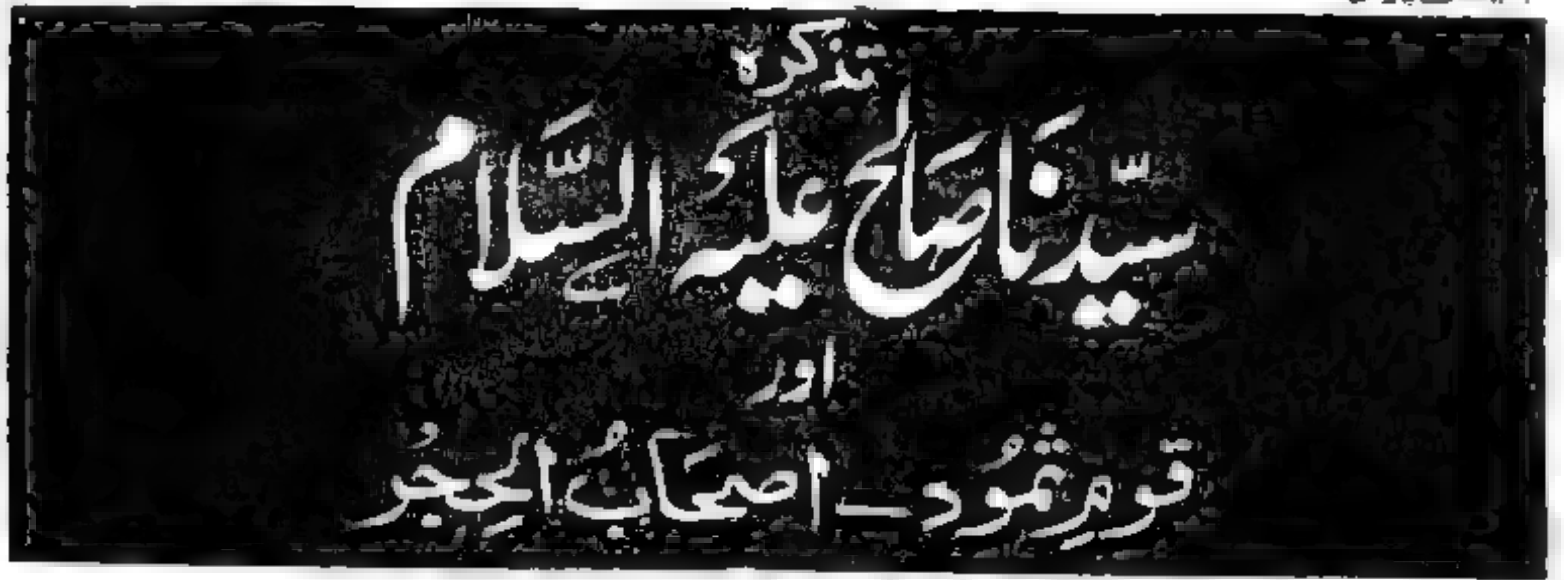 تذکرہ
سیّدنا صَالح علیہ السَّلام
اور
قومِ ثمُود ـ اصحَابُ الحِجرُ